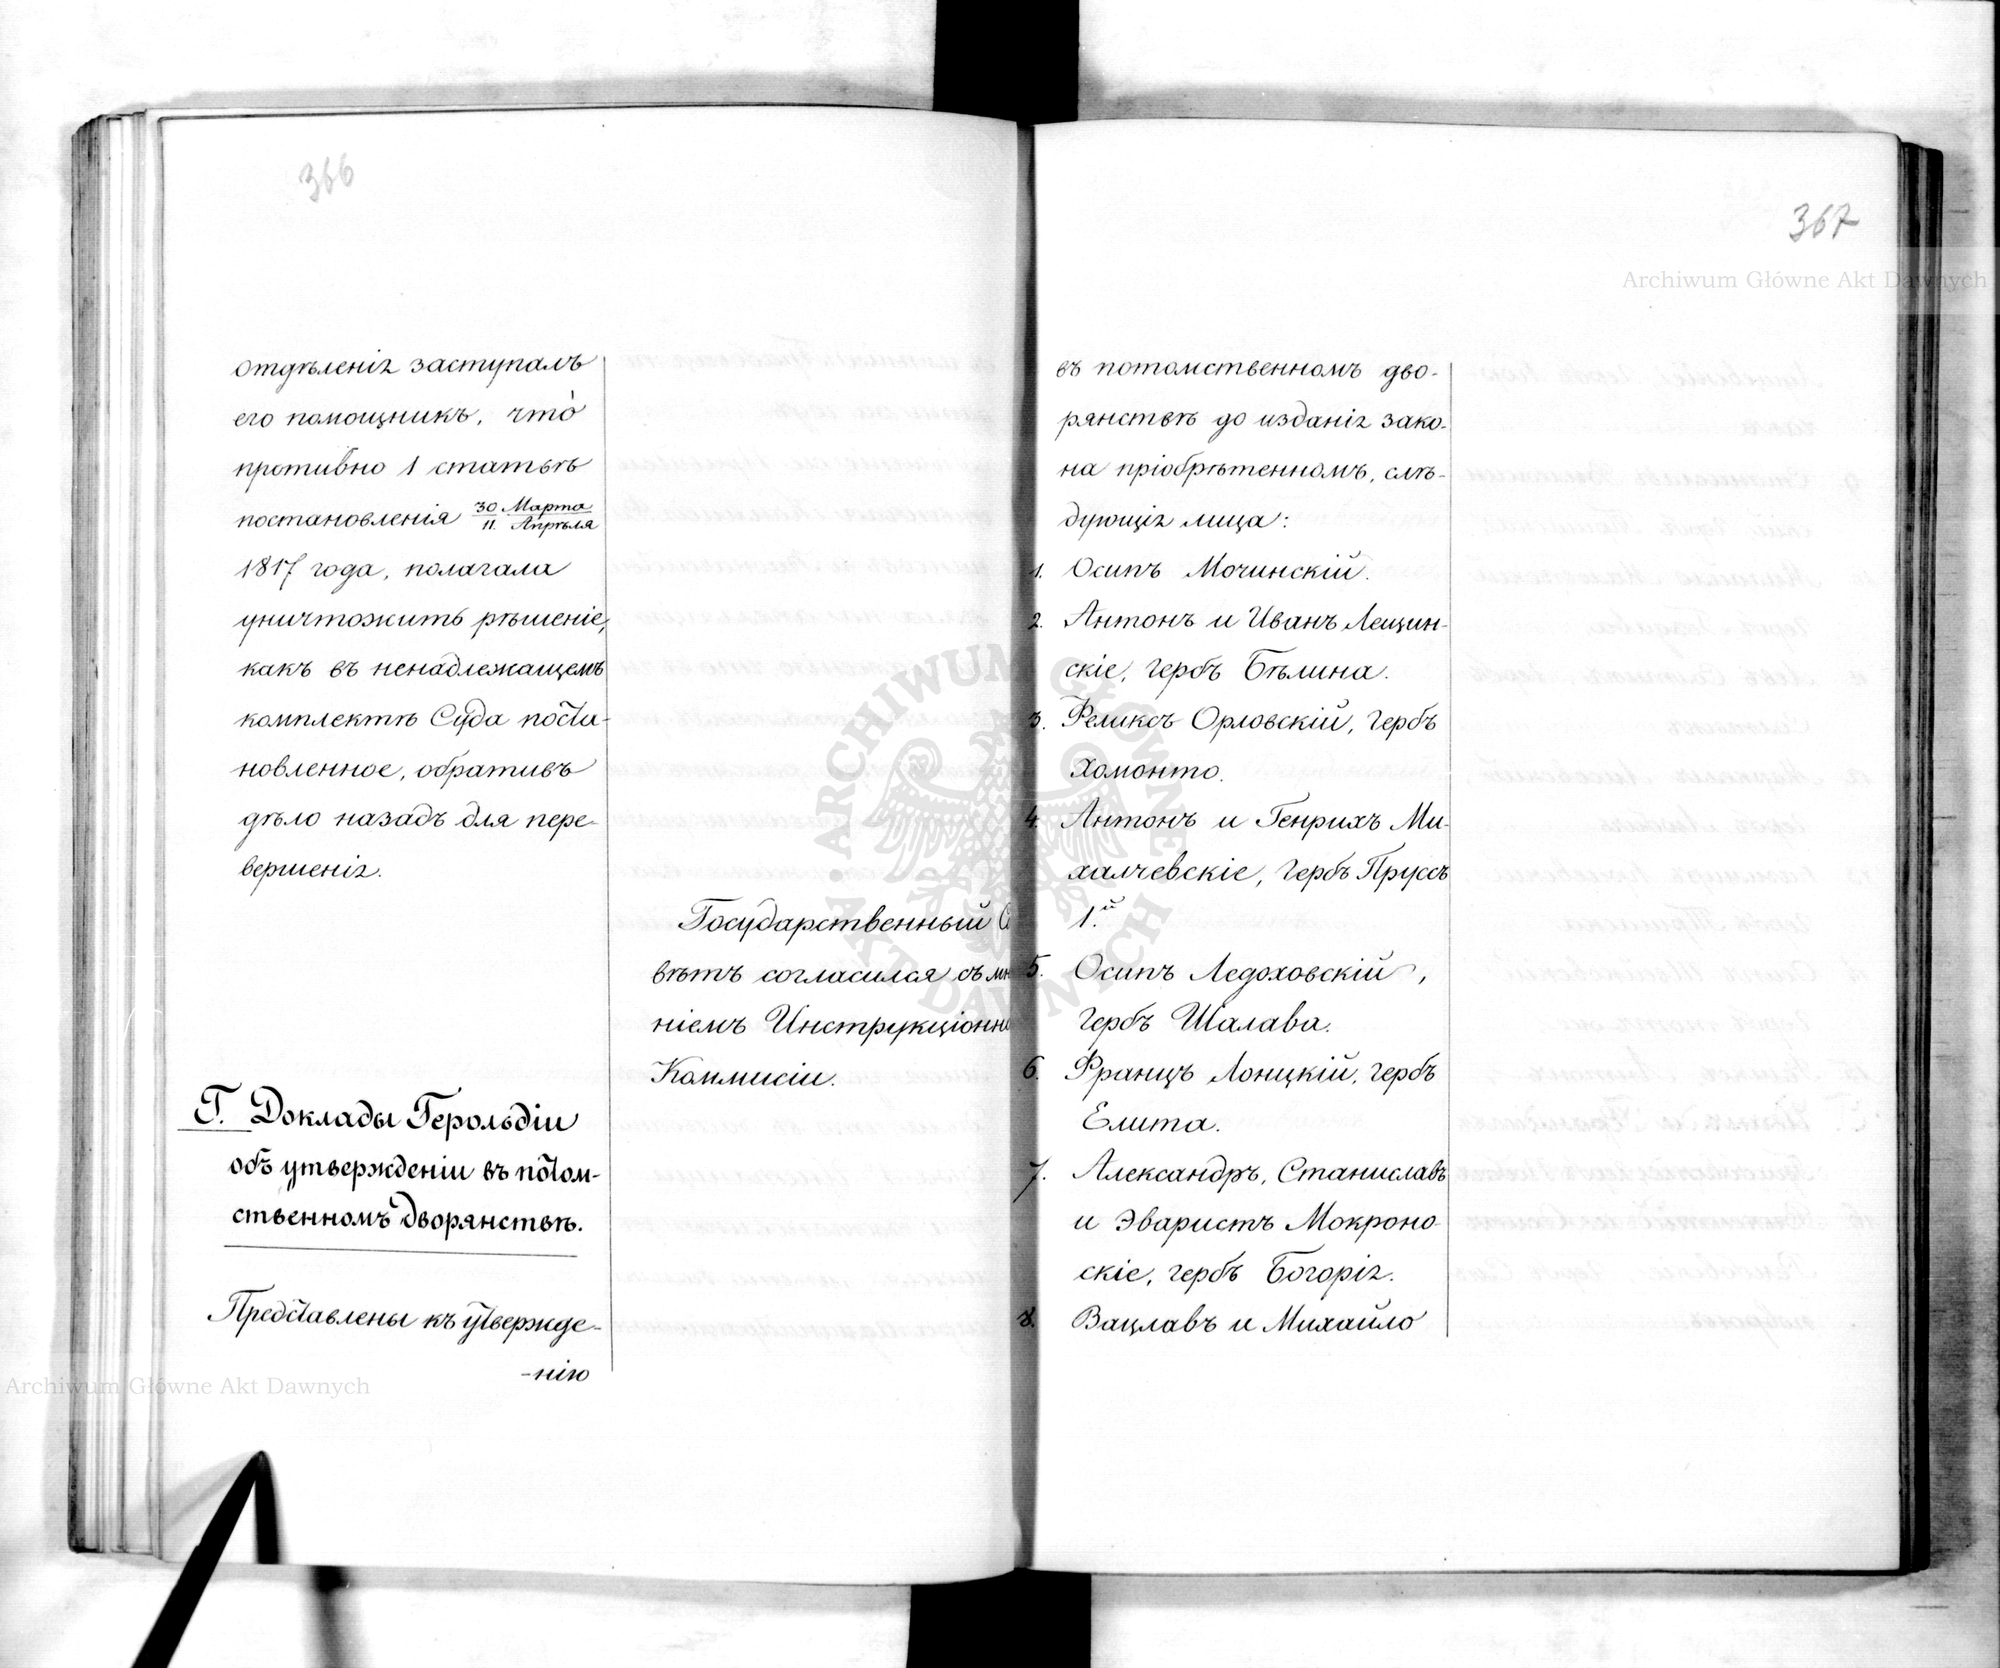 366
отдѣленія заступалъ
его помощникъ, что̀
противно 1 статьѣ
постановленія 30 Марта / 11. Апрѣля
1817 года, полагала
уничтожить рѣшеніе,
какъ въ ненадлежащемъ
комплектѣ Суда поста-
новленное, обративъ
дѣло назадъ для пере-
вершенія.
Государственный
вѣтъ согласился съ мн
ніемъ Инструкціонн
Коммисіи.
Г. Доклады Герольдіи
объ утвержденіи въ потом-
ственномъ дворянствѣ.
Представлены къ утвержде-
-нію
367
въ потомственномъ дво-
рянствѣ до изданія зако-
на пріобрѣтенномъ, слѣ-
дующія лица:
1. Осипъ Мочинскій.
2. Антонъ и Иванъ Лещин-
скіе, гербъ Бѣлина.
3. Феликсъ Орловскій, гербъ
Хомонто.
4. Антонъ и Генрихъ Ми-
халчевскіе, гербъ Пруссъ
1.й
5. Осипъ Ледоховскій,
гербъ Шалава.
6. Францъ Лонцкій, гербъ
Елита.
7. Александръ, Станиславъ
и Эваристъ Мокроно-
скіе, гербъ Богорія.
8. Вацлавъ и Михайло
Archiwum Główne Akt Dawnych
Archiwum Główne Akt Dawnych
ARCHIWUM GŁÓWNE AKT DAWNYCH